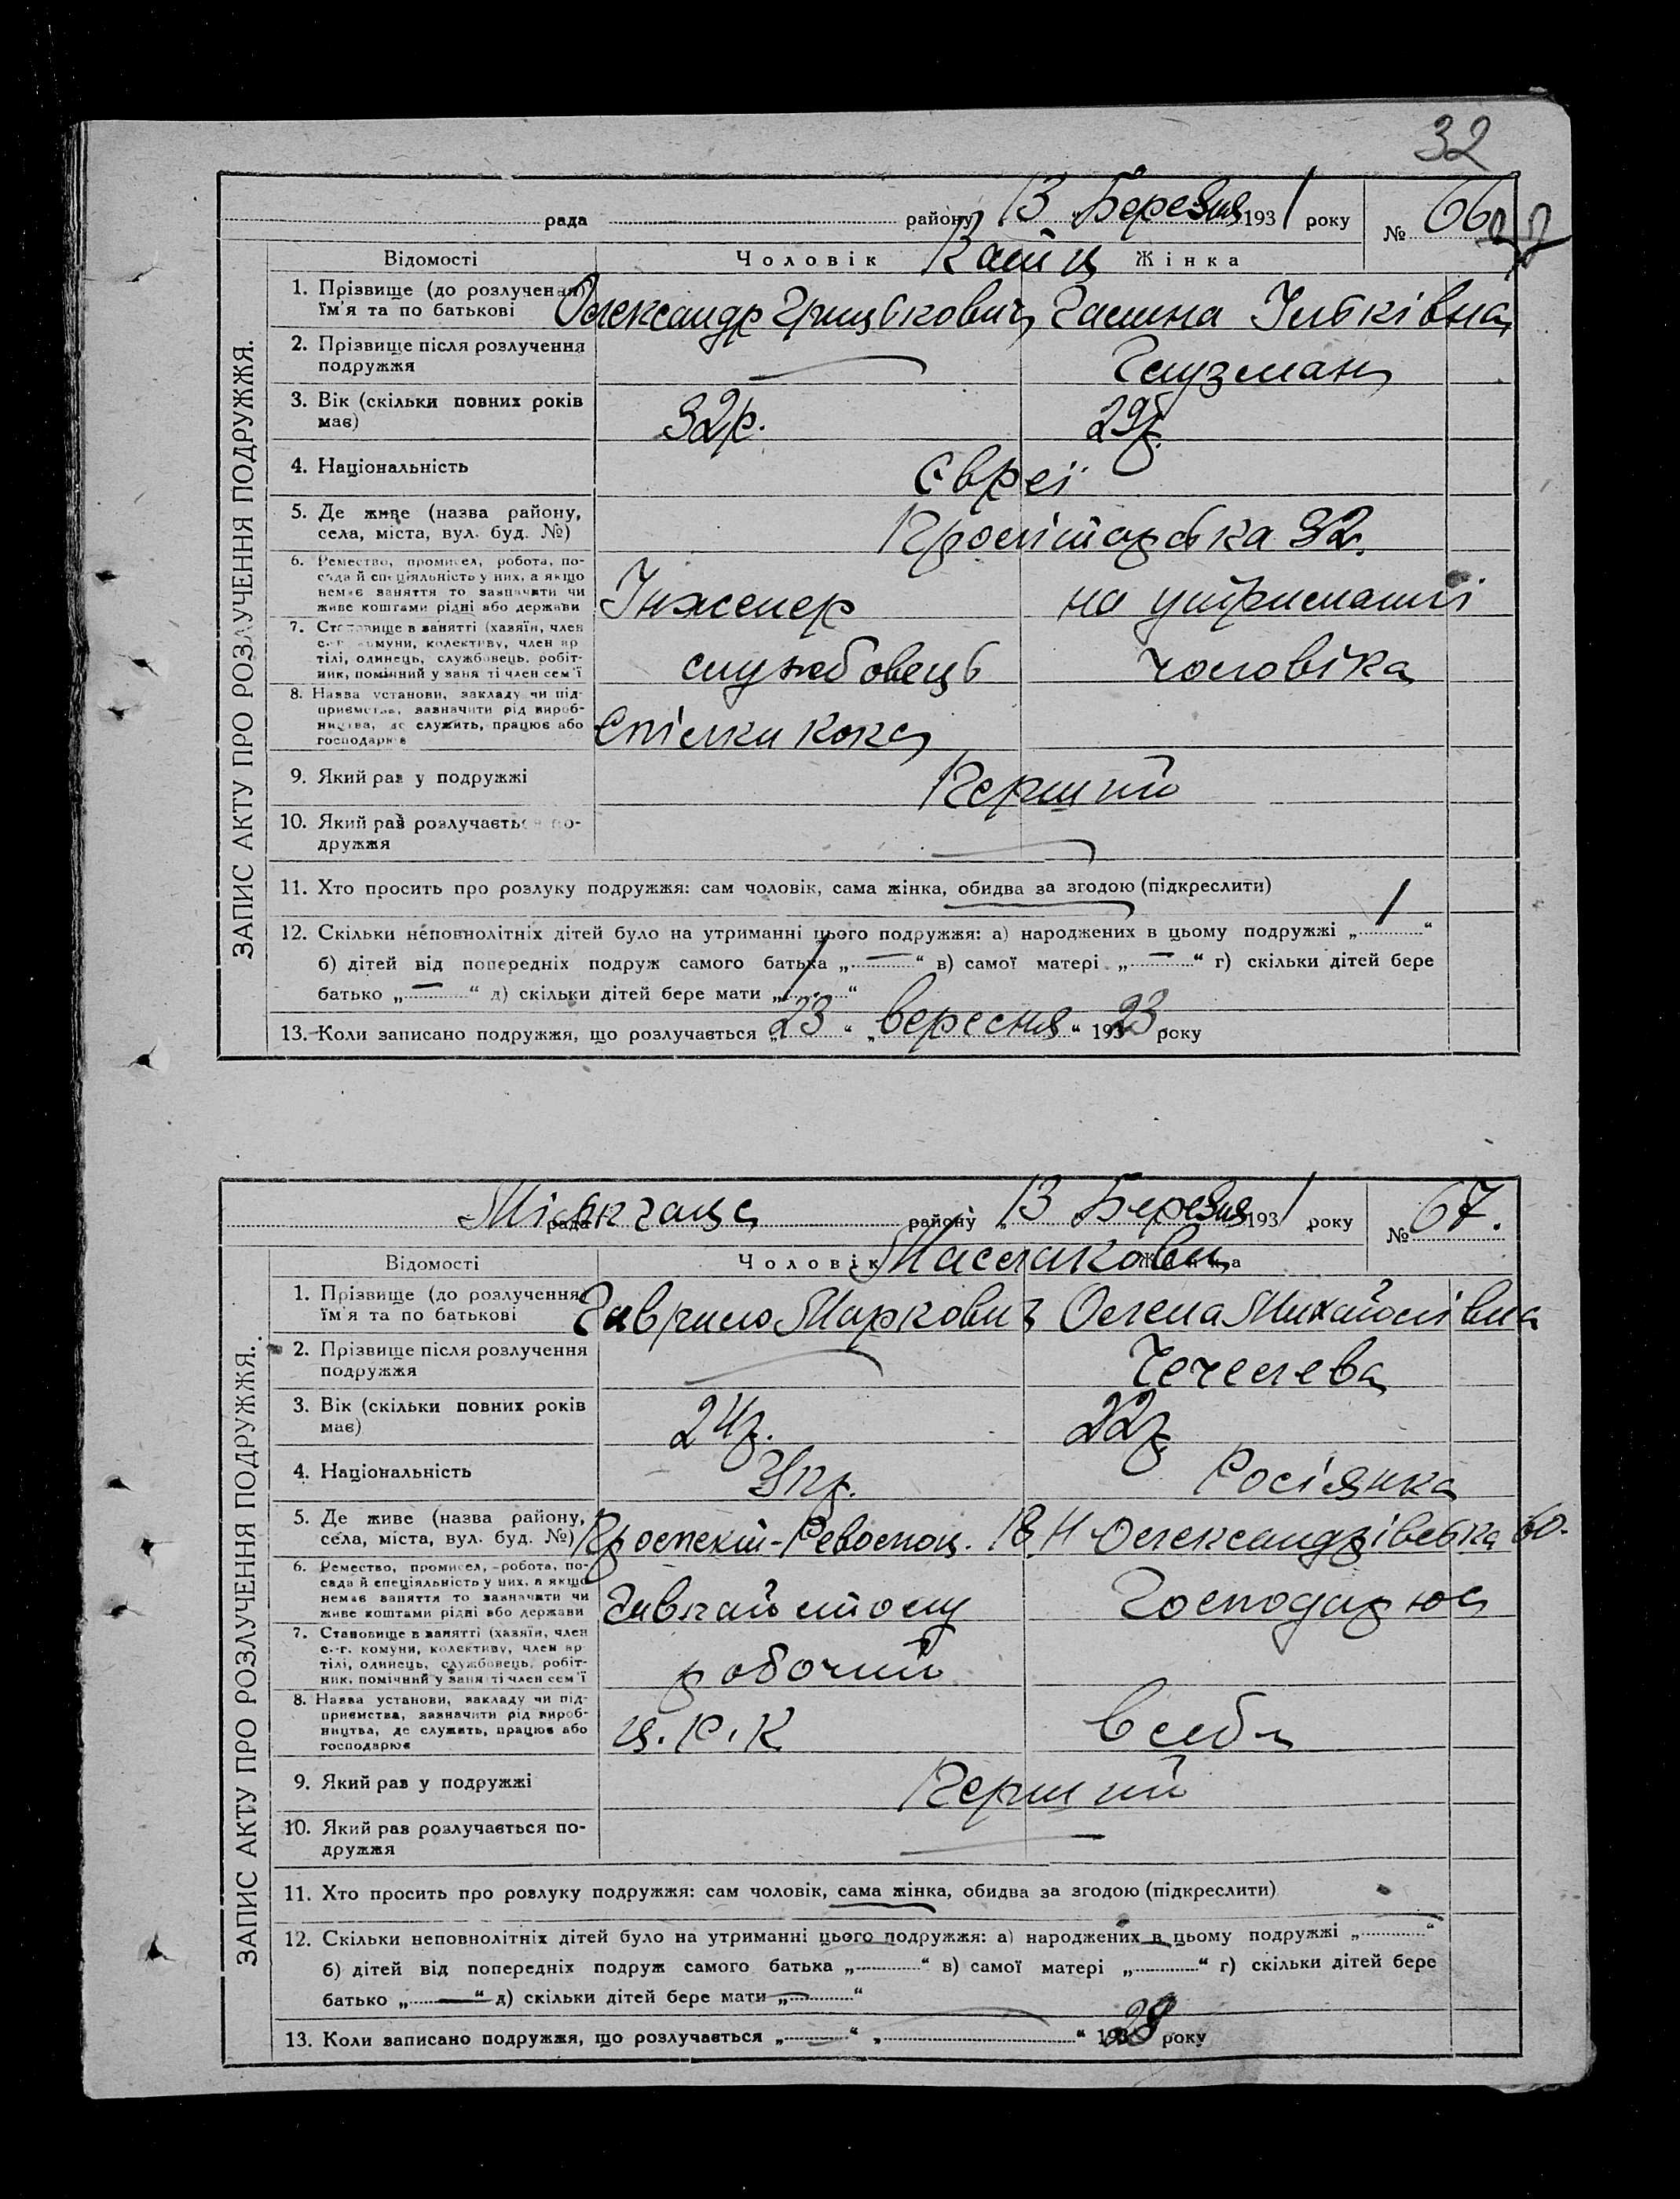 32
рада района 13 Березня 1931 року № 66
Відомості Чоловік Кац Жінка
1. Прізвище (до розлучення) їм'я та по батькові Олександр Грицькович Галина Ільківна
2. Прізвище після розлучення подружжя — Глузман
3. Вік (скільки повних років має) 32р. 29р.
4. Національність Євреї
5. Де живе (назва району, села, міста, вул. буд. №) Пролітарська 32.
6. Ремество, промисел, робота, посада й спеціяльність у них, а якщо немає заняття то зазначити чи живе коштами рідні або держави Інженер на утриманні
7. Становище в занятті (хазяїн, член с.-г. комуни, колективу, член артілі, одинець, службовець, робітник, помічний у занятті член сем'ї службовець чоловіка
8. Назва установи, закладу чи підприємства, зазначити рід виробництва, де служить, працює або господарює Спілки кокс
9. Який раз у подружжі Перший
10. Який раз розлучається подружжя —
11. Хто просить про розлуку подружжя: сам чоловік, сама жінка, обидва за згодою (підкреслити)
12. Скільки неповнолітніх дітей було на утриманні цього подружжя: а) народжених в цьому подружжі „1“
б) дітей від попередніх подруж самого батька „—“ в) самої матері „—“ г) скільки дітей бере
батько „—“ д) скільки дітей бере мати „1“
13. Коли записано подружжя, що розлучається „23“ „вересня“ 19323 року
ЗАПИС АКТУ ПРО РОЗЛУЧЕННЯ ПОДРУЖЖЯ.
рада району 13 Березня 1931 року № 67.
Відомості Чоловік Маслакови Жінка
1. Прізвище (до розлучення) їм'я та по батькові Гаврило Маркович Олена Михайлівна
2. Прізвище після розлучення подружжя — Чечелева
3. Вік (скільки повних років має) 24р. 22р.
4. Національність Укр. Росіянка
5. Де живе (назва району, села, міста, вул. буд. №) Проспект-Революц. 18 Н Олександрівська 60.
6. Ремество, промисел, робота, посада й спеціяльність у них, а якщо немає заняття то зазначити чи живе коштами рідні або держави Господарює
7. Становище в занятті (хазяїн, член с.-г. комуни, колективу, член артілі, одинець, службовець, робітник, помічний у занятті член сем'ї робочий
8. Назва установи, закладу чи підприємства, зазначити рід виробництва, де служить, працює або господарює Ц.Р.К. в себя
9. Який раз у подружжі Перший
10. Який раз розлучається подружжя —
11. Хто просить про розлуку подружжя: сам чоловік, сама жінка, обидва за згодою (підкреслити)
12. Скільки неповнолітніх дітей було на утриманні цього подружжя: а) народжених в цьому подружжі „—“
б) дітей від попередніх подруж самого батька „“ в) самої матері „“ г) скільки дітей бере
батько „—“ д) скільки дітей бере мати „—“
13. Коли записано подружжя, що розлучається „—“ „“ 19328 року
ЗАПИС АКТУ ПРО РОЗЛУЧЕННЯ ПОДРУЖЖЯ.